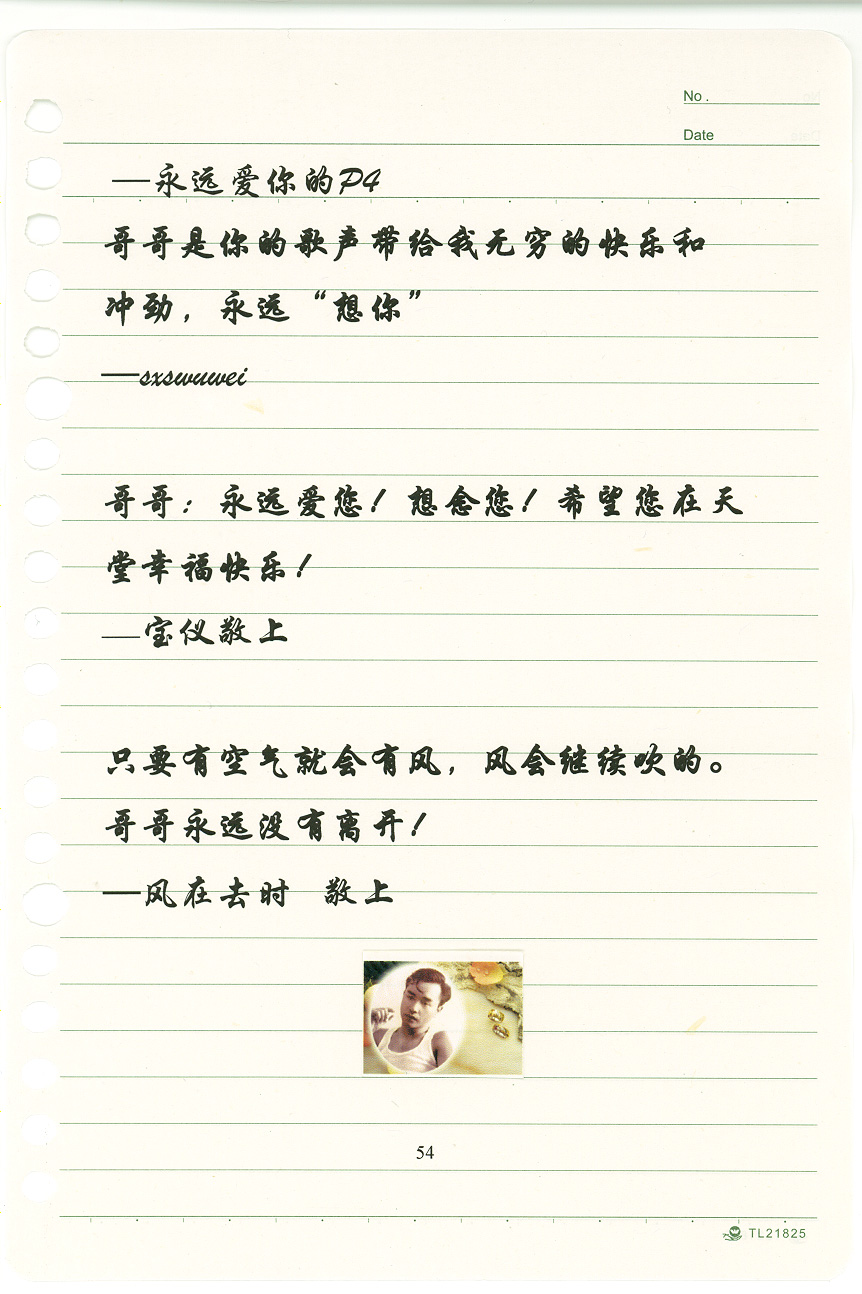 No.
Date
—永远爱你的P4
哥哥是你的歌声带给我无穷的快乐和
冲劲，永远“想你”
—sxswuwei
哥哥：永远爱您！想念您！希望您在天
堂幸福快乐！
—宝仪敬上
只要有空气就会有风，风会继续吹的。
哥哥永远没有离开！
—风在去时 敬上
54
TL21825